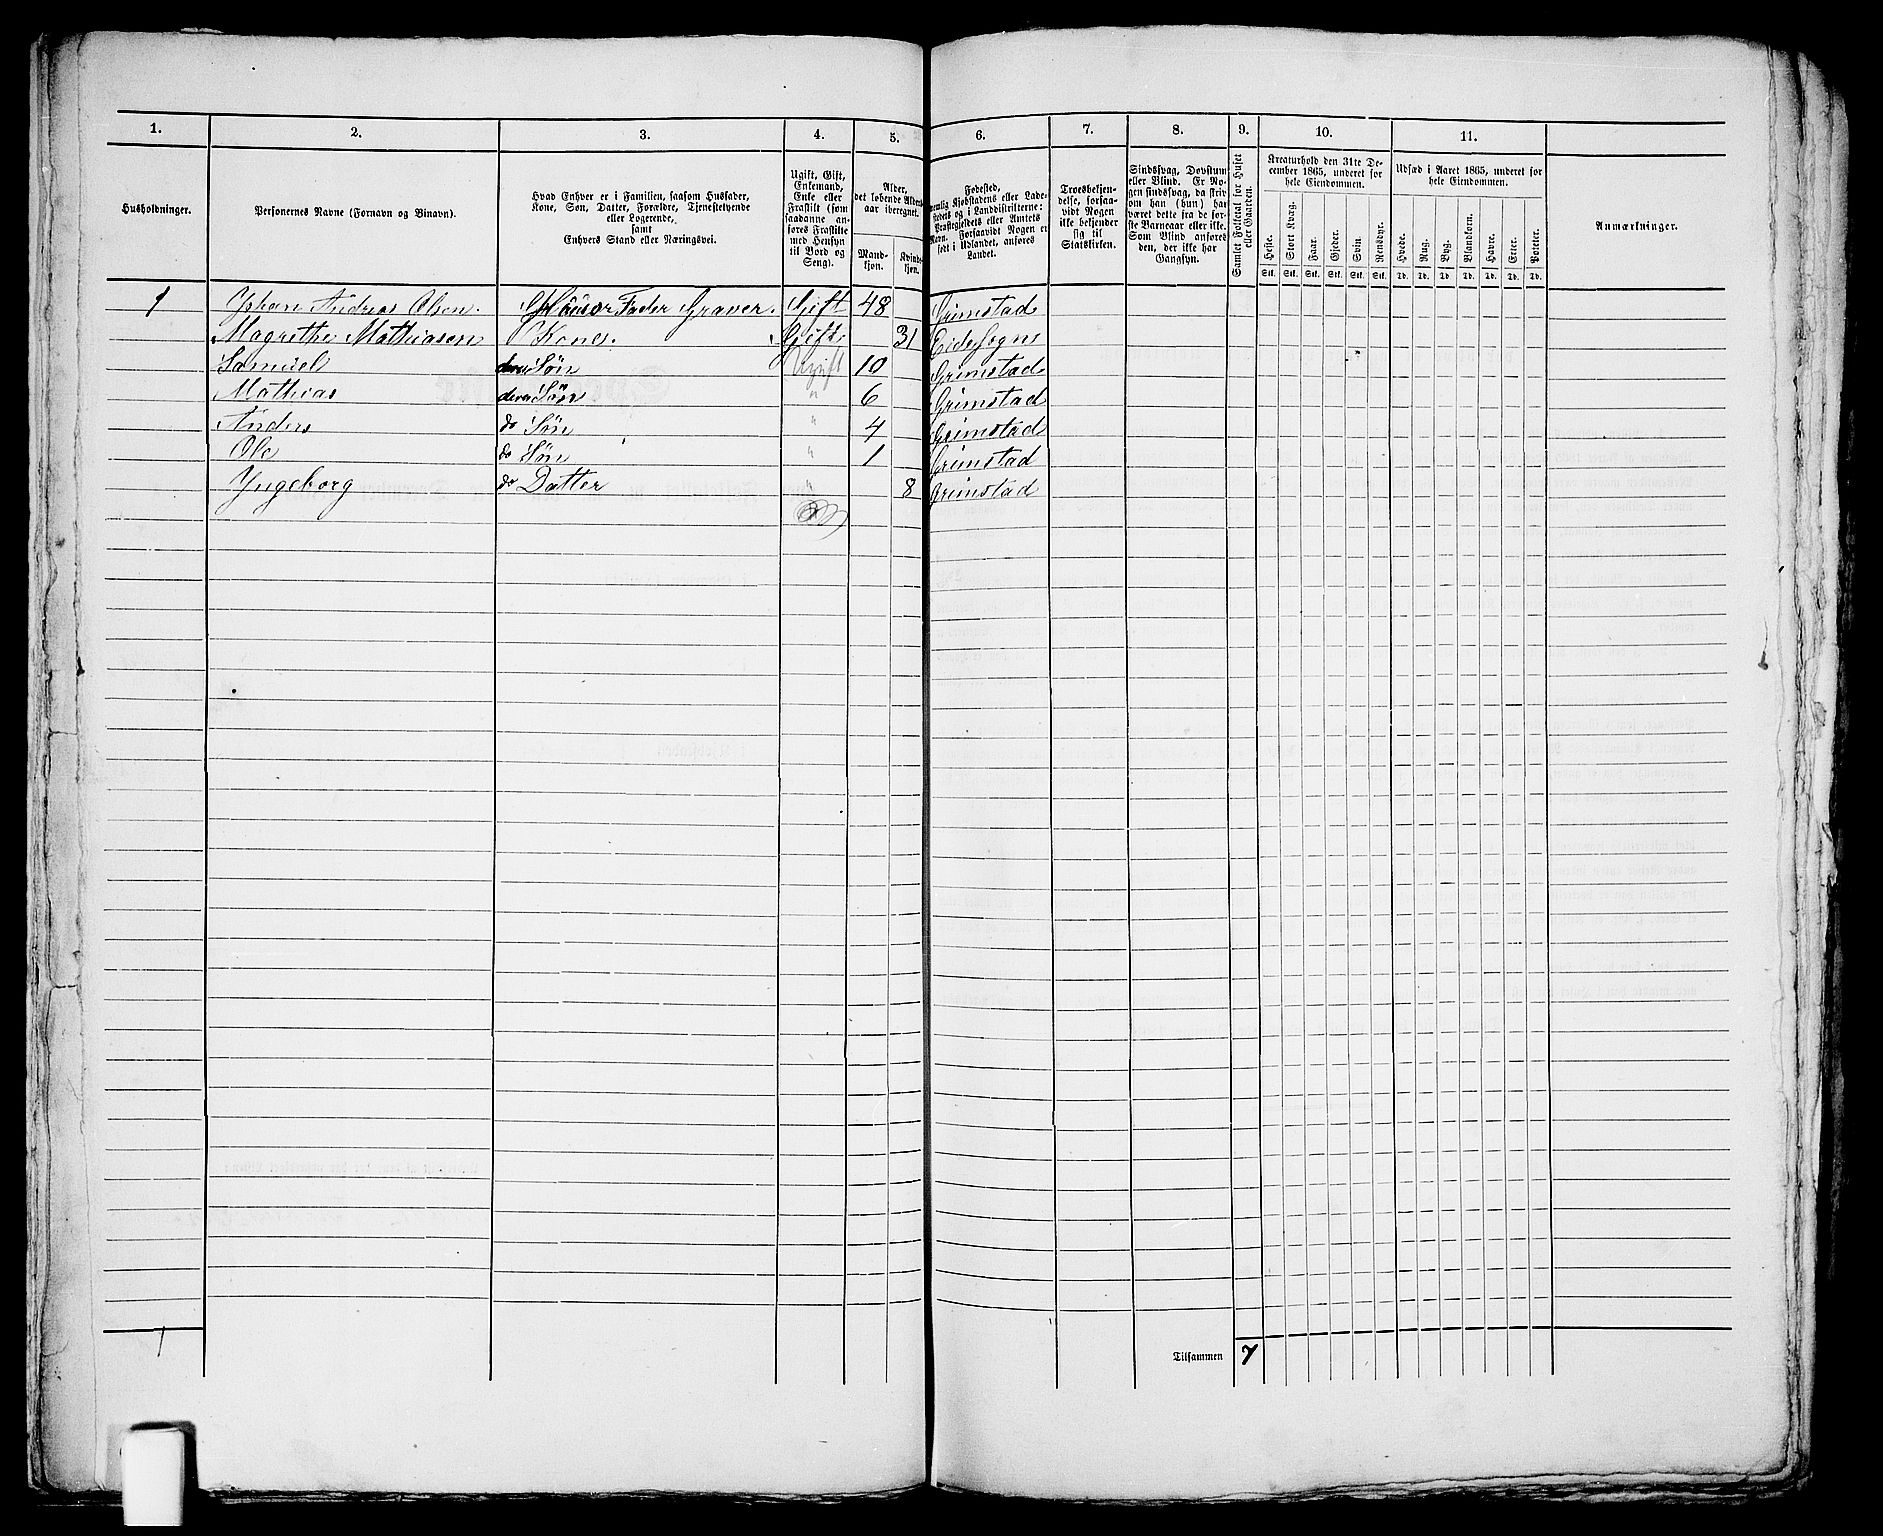 1. 2. 3. 4. 5. 6. 7. 8. 9. 10. 11.
Husholdninger.
Personernes Navne (Fornavn og Binavn).
Hvad Enhver er i Familien, saasom Husfader,
Kone, Søn, Datter, Forældre, Tjenestetyende
eller Logerende,
samt
Enhvers Stand eller Næringsvei.
Ugift, Gift,
Enkemand,
Enke eller
Fraskilt (som
saadanne an-
føres Fraskilte
med Hensyn
til Bord og
Seng).
Alder,
det løbende Alders-
aar iberegnet.
Mand-
kjøn.
Kvinde-
kjøn.
Fødested,
nemlig Kjøbstadens eller Lade-
stedets og i Landdistrikterne:
Præstegjeldets eller Amtets
Navn. Forsaavidt Nogen er
født i Udlandet, anføres
Landet.
Troesbekjen-
delse, forsaa-
vidt Nogen
ikke bekjender
sig til
Statskirken.
Sindssvag, Døvstum
eller Blind. Er No-
gen sindssvag, da skriv
om han (hun) har
været dette fra de før-
ste Barneaar eller ikke.
Som Blind anføres
den, der ikke har
Gangsyn.
Samlet Folketal for Huset
eller Gaarden.
Kreaturhold den 31te De-
cember 1865, underet for
hele Eiendommen.
Heste. Stort Kvæg. Faar. Gjeder. Svin. Rensdyr.
Stk. Stk. Stk. Stk. Stk. Stk.
Udsæd i Aaret 1865, underet for
hele Eiendommen.
Hvede. Rug. Byg. Blandkorn. Havre. Erter. Poteter.
Td. Td. Td. Td. Td. Td. Td.
Anmærkninger.
1 Johan Andreas Olsen. Huusfader Graver. Gift 48 Grimstad
Magrethe Mathiasen Kone. Gift 31 Eide Sogn
Samuel deres Søn Ugift 10 Grimstad
Mathias deres Søn " 6 Grimstad
Anders do Søn " 4 Grimstad
Ole do Søn " 1 Grimstad
Yngeborg do Datter " 8 Grimstad
1 Tilsammen 7